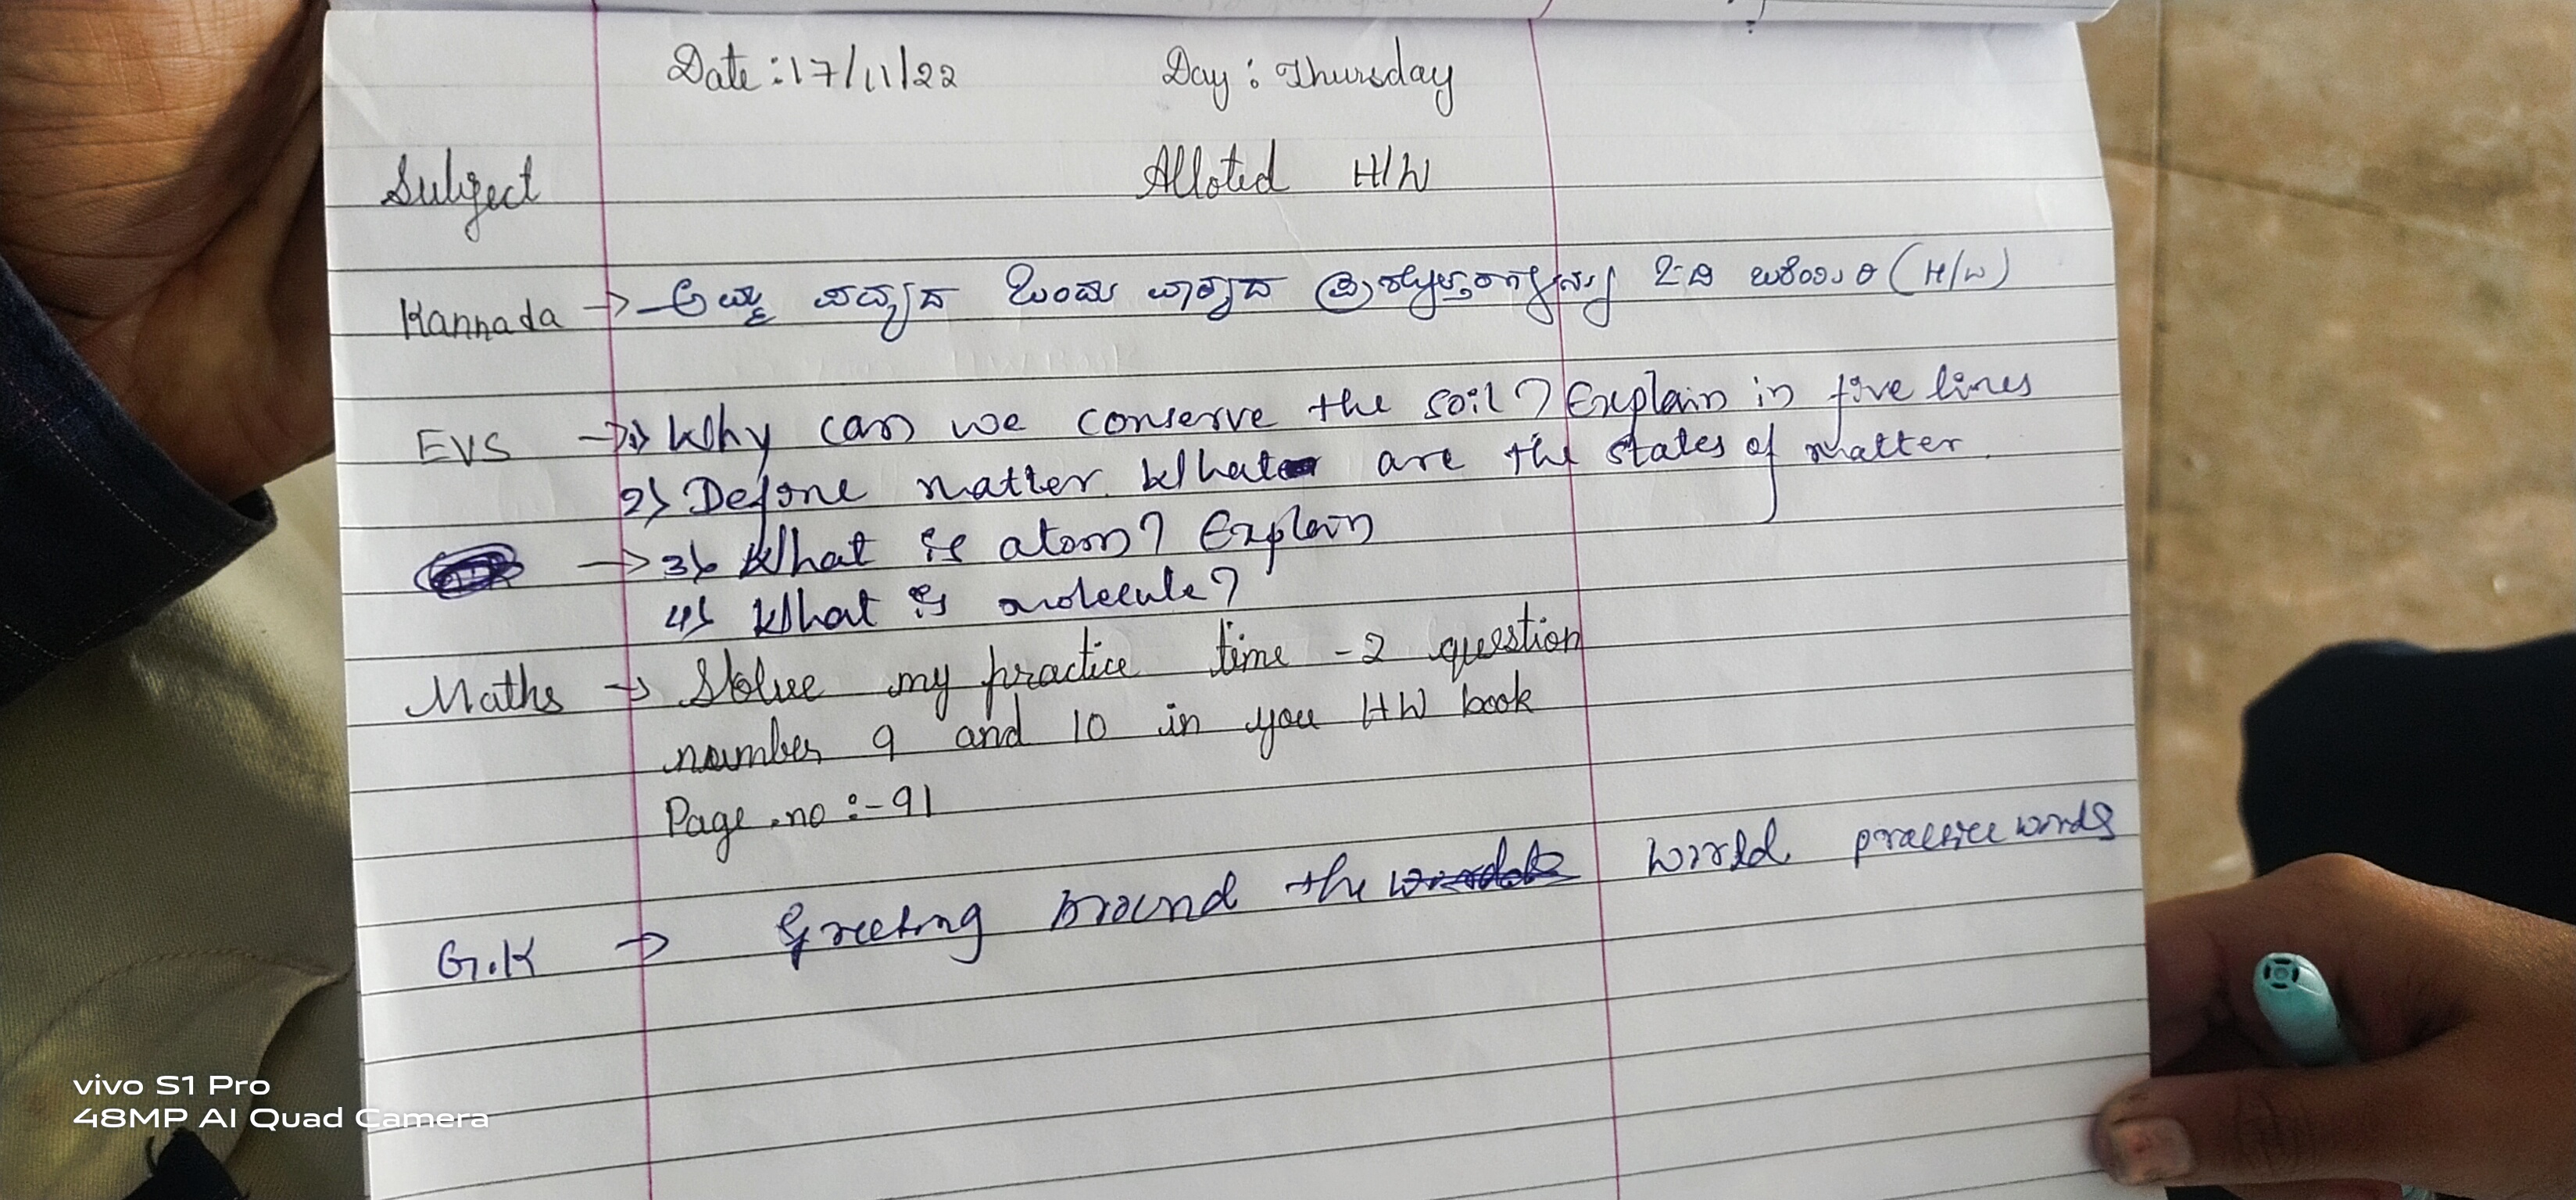 Date :17/11/22 Day : Thursday
Subject Alloted H/W
Kannada → ಪದ್ಯದ ಒಂದು ವಾಕ್ಯದ 2-ಬಿ (H/W)
EVS → 1) Why can we conserve the soil? Explain in five lines
2) Define matter. What are the states of matter.
→ 3) What is atom? Explain
4) What is molecule?
Maths → Solve my practice time - 2 question
number 9 and 10 in you HW book
Page .no :- 91
G.K → Greeting around the world practice words
vivo S1 Pro
48MP AI Quad Camera